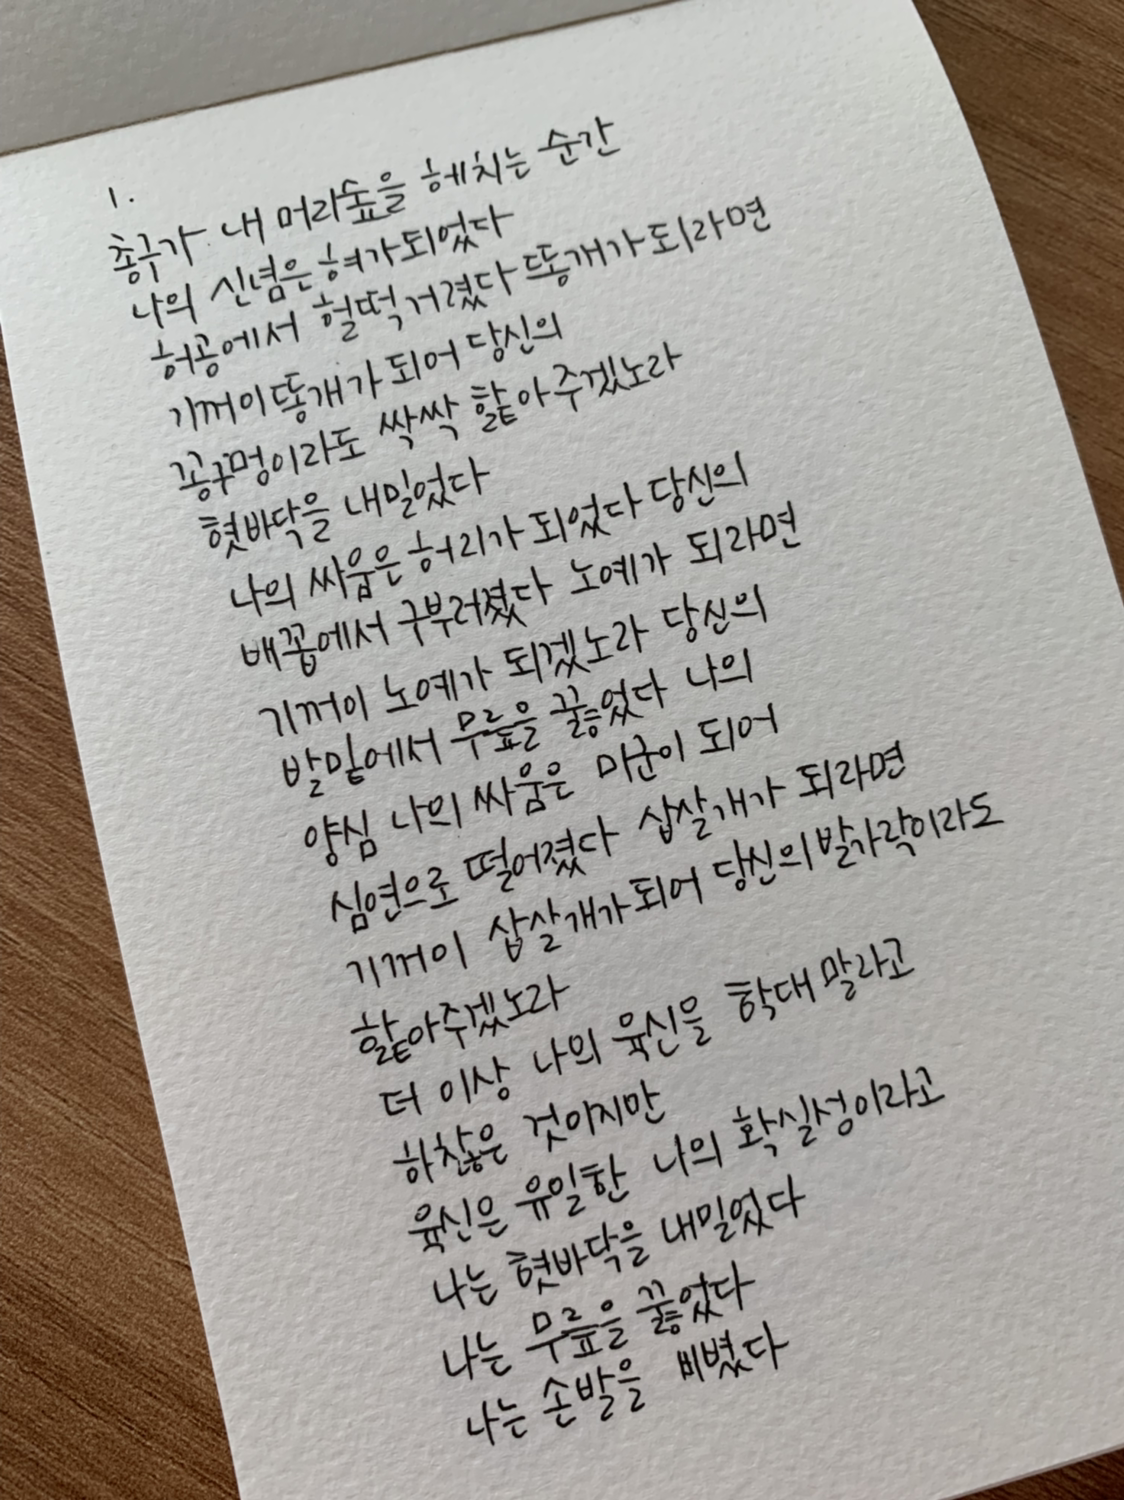 1.
총구가 내 머리숲을 헤치는 순간
나의 신념은 혀가 되었다
허공에서 헐떡거렸다 똥개가 되라면
기꺼이 똥개가 되어 당신의
똥구멍이라도 싹싹 핥아주겠노라
혓바닥을 내밀었다
나의 싸움은 허리가 되었다 당신의
배꼽에서 구부러졌다 노예가 되라면
기꺼이 노예가 되겠노라 당신의
발밑에서 무릎을 꿇었다 나의
양심 나의 싸움은 미군이 되어
심연으로 떨어졌다 삽살개가 되라면
기꺼이 삽살개가 되어 당신의 발가락이라도
핥아주겠노라
더 이상 나의 육신을 학대 말라고
하찮은 것이지만
육신은 유일한 나의 확실성이라고
나는 혓바닥을 내밀었다
나는 무릎을 꿇었다
나는 손발을 비볐다